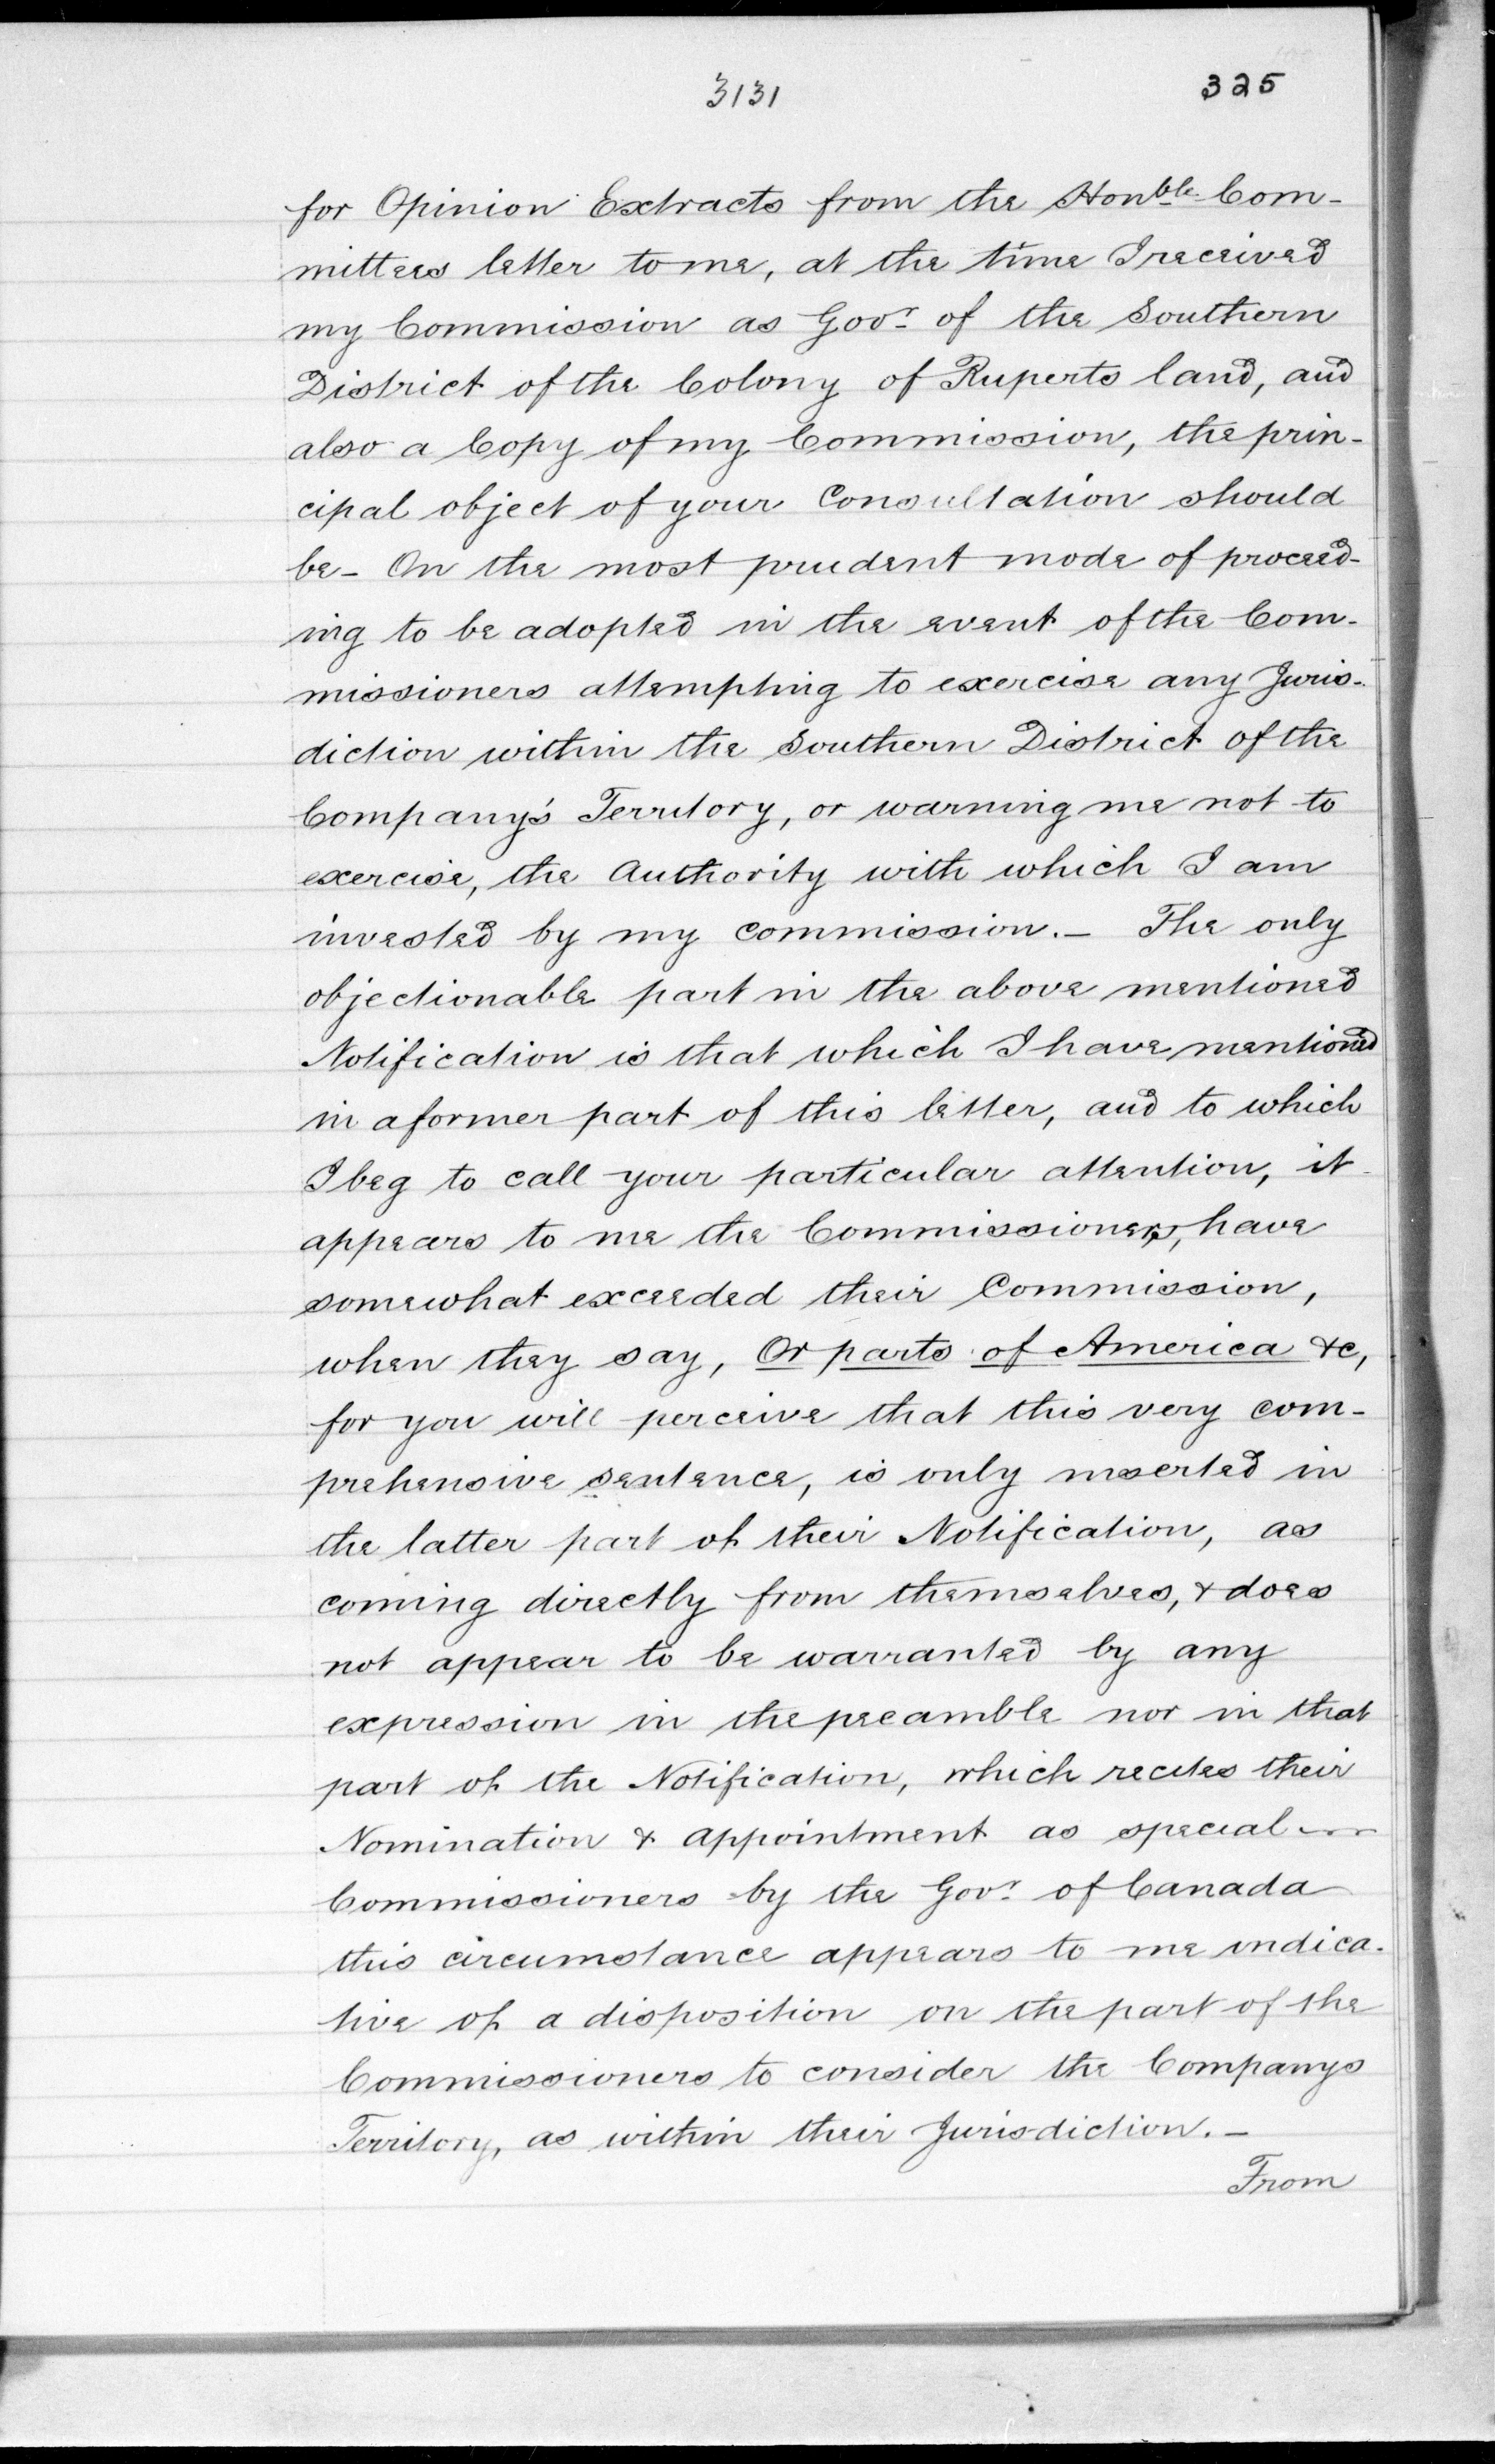 3131 325
for Opinion Extracts from the Honble Com-
mittees letter to me, at the time I received
my Commission as Govr of the Southern
District of the Colony of Ruperts land, and
also a Copy of my Commission, the prin-
cipal object of your Consultation should
be - On the most prudent mode of proceed-
ing to be adopted in the event of the Com-
missioners attempting to exercise any Juris-
diction within the Southern District of the
Company's Territory, or warning me not to
exercise, the Authority with which I am
invested by my commission. - The only
objectionable part in the above mentioned
Notification is that which I have mentioned
in a former part of this letter, and to which
I beg to call your particular attention, it
appears to me the Commissioners, have
somewhat exceeded their Commission,
when they say, Or parts of America &c,
for you will perceive that this very com-
prehensive sentence, is only inserted in
the latter part of their Notification, as
coming directly from themselves, & does
not appear to be warranted by any
expression in the preamble nor in that
part of the Notification, which recites their
Nomination & appointment as special
Commissioners by the Govr of Canada
this circumstance appears to me indica-
tive of a disposition on the part of the
Commissioners to consider the Companys
Territory, as within their Jurisdiction. -
From